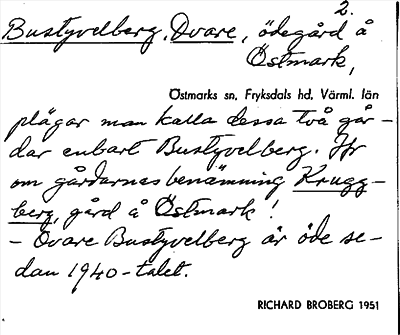 2.
Bustyvelberg, Övare, ödegård å
Östmark,
Östmarks sn, Fryksdals hd, Värml. län
plägar man kalla dessa två går-
dar enbart Bustyvelberg. Jfr
om gårdarnes benämning Krugg-
berg, gård å Östmark!
- Övare Bustyvelberg är öde se-
dan 1940-talet.
RICHARD BROBERG 1951